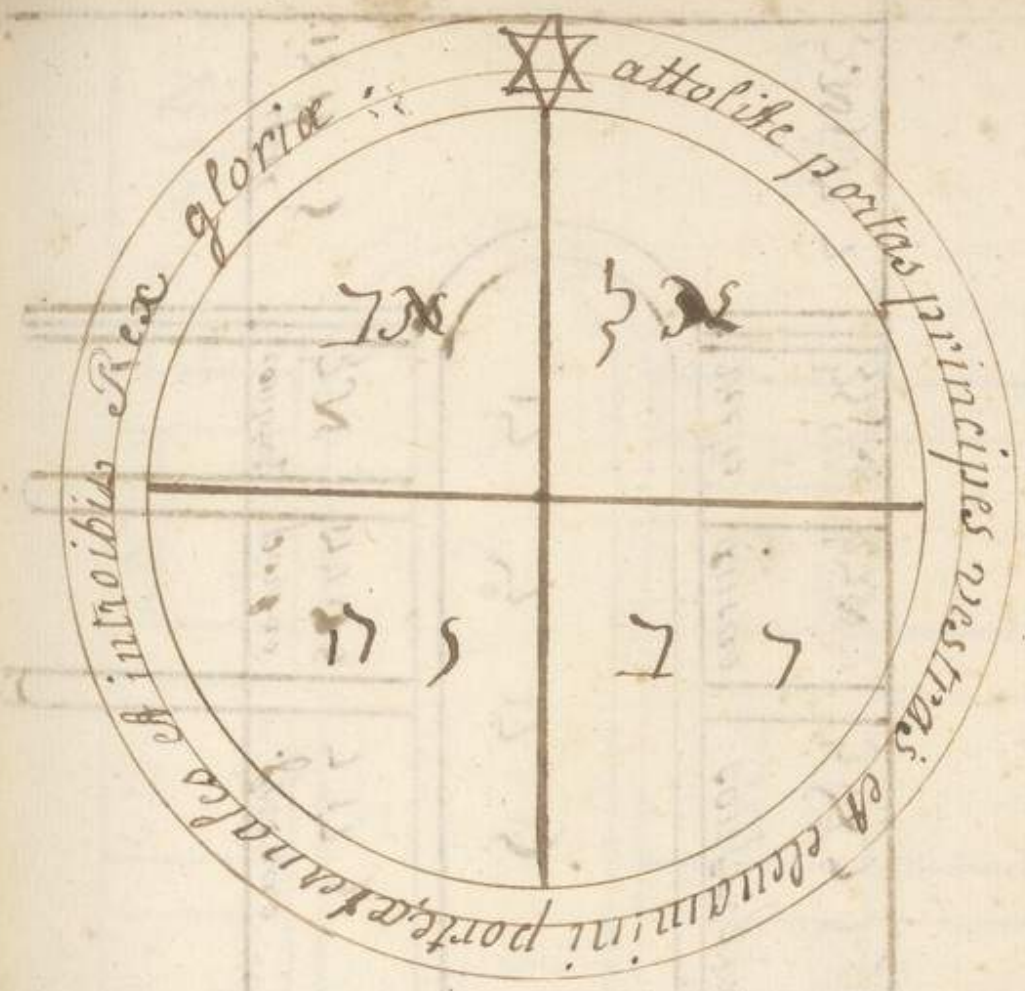 attolite portas principes vestras et elevamini portæ æternales et introibit Rex gloriæ
אל
אב
רב
זה